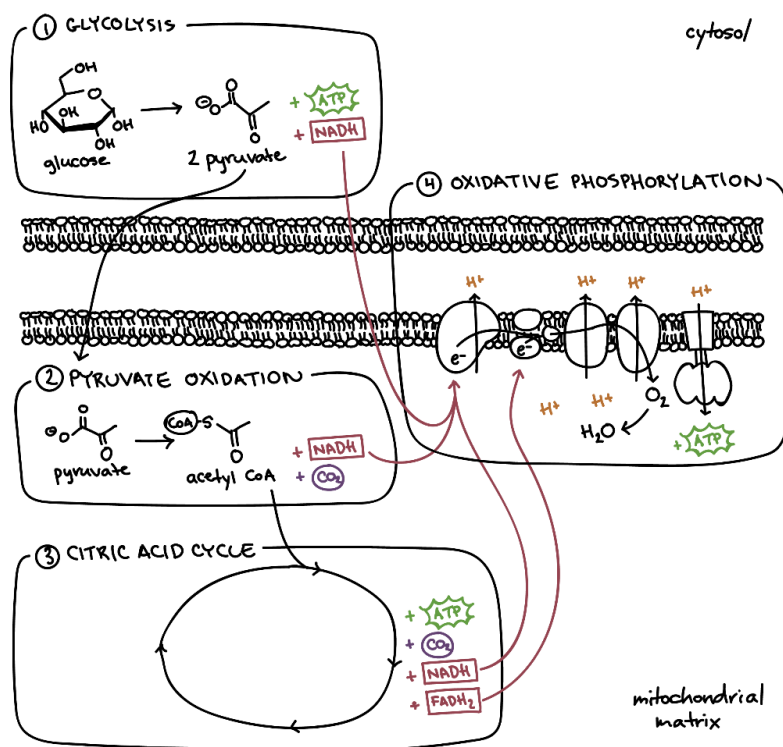 ① GLYCOLYSIS
cytosol
OH
O
OH
HO
OH
OH
glucose
⊖O
O
O
2 pyruvate
+ ATP
+ NADH
④ OXIDATIVE PHOSPHORYLATION
H+ H+ H+ H+
e-
e-
H+ H+
O₂
H₂O
+ ATP
② PYRUVATE OXIDATION
⊖O
O
O
pyruvate
CoA-S
O
acetyl CoA
+ NADH
+ CO₂
③ CITRIC ACID CYCLE
+ ATP
+ CO₂
+ NADH
+ FADH₂
mitochondrial
matrix